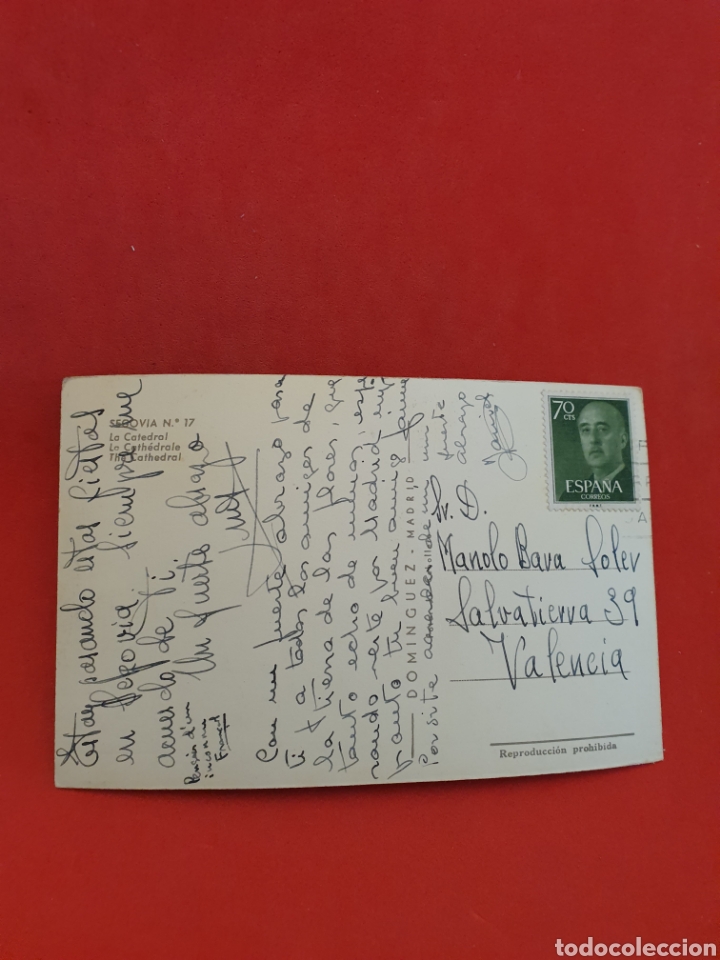 SEGOVIA N.º 17
La Catedral
La Cathédrale
The Cathedral
Estoy pasando estas fiestas
en Segovia. Siempre me
acuerdo de ti.
Un fuerte abrazo
inconnu
Français
Con un fuerte abrazo para
ti a todos los amigos de
la tierra de las flores, que
tanto echo de menos, espe
rando verte por Madrid
tu buen amigo Jaime
DOMINGUEZ - MADRID
un
fuerte
abrazo
70 CTS
ESPAÑA
CORREOS
Sr. D.
Manolo Bava Soler
Salvatierra 39
Valencia
Reproducción prohibida
todocoleccion